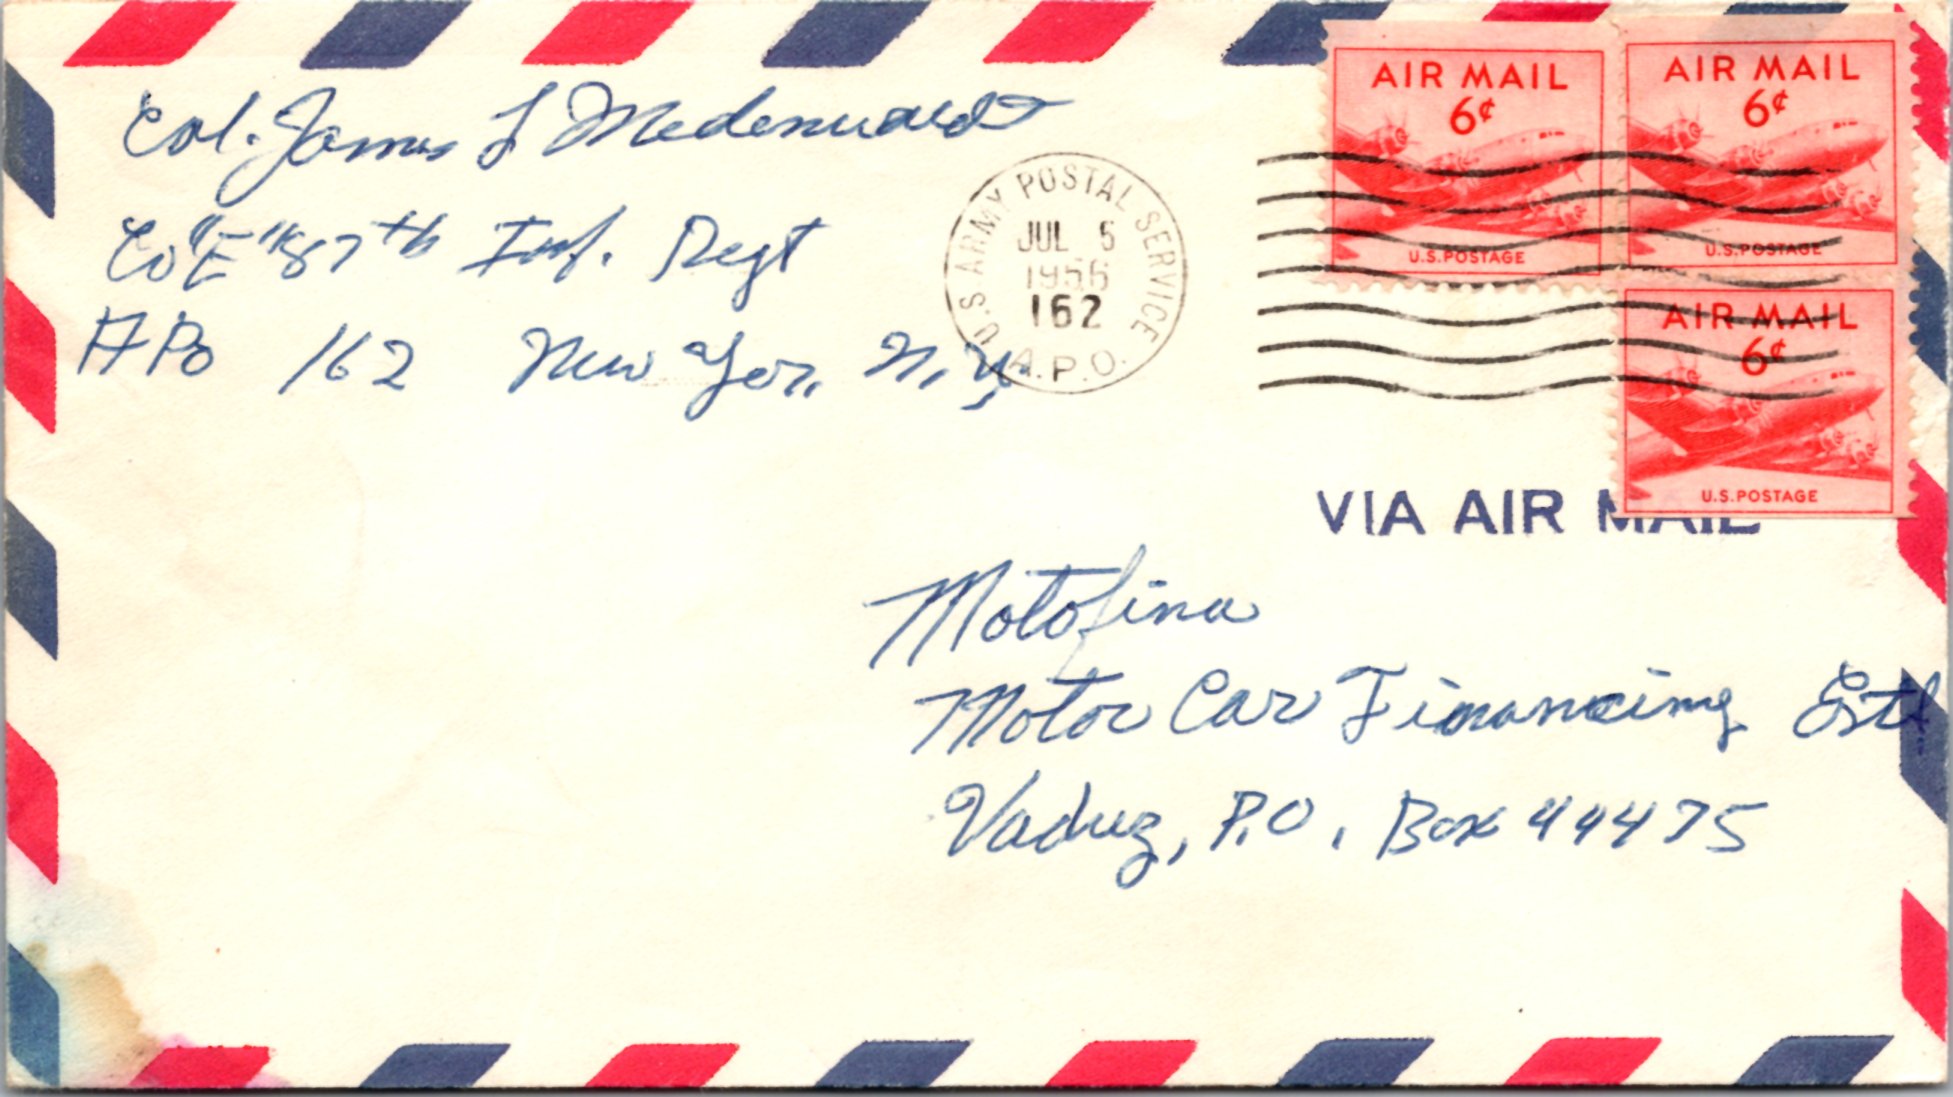 Col. James L Medenwaldt
Co "E" 87th Inf. Regt
APO 162 New Yor, N.Y.
U.S. ARMY POSTAL SERVICE
JUL 5
1956
162
A.P.O.
AIR MAIL
6¢
U.S. POSTAGE
AIR MAIL
6¢
U.S. POSTAGE
AIR MAIL
6¢
U.S. POSTAGE
VIA AIR MAIL
Motofina
Motor Car Financing Est.
Vaduz, P.O. Box 44475